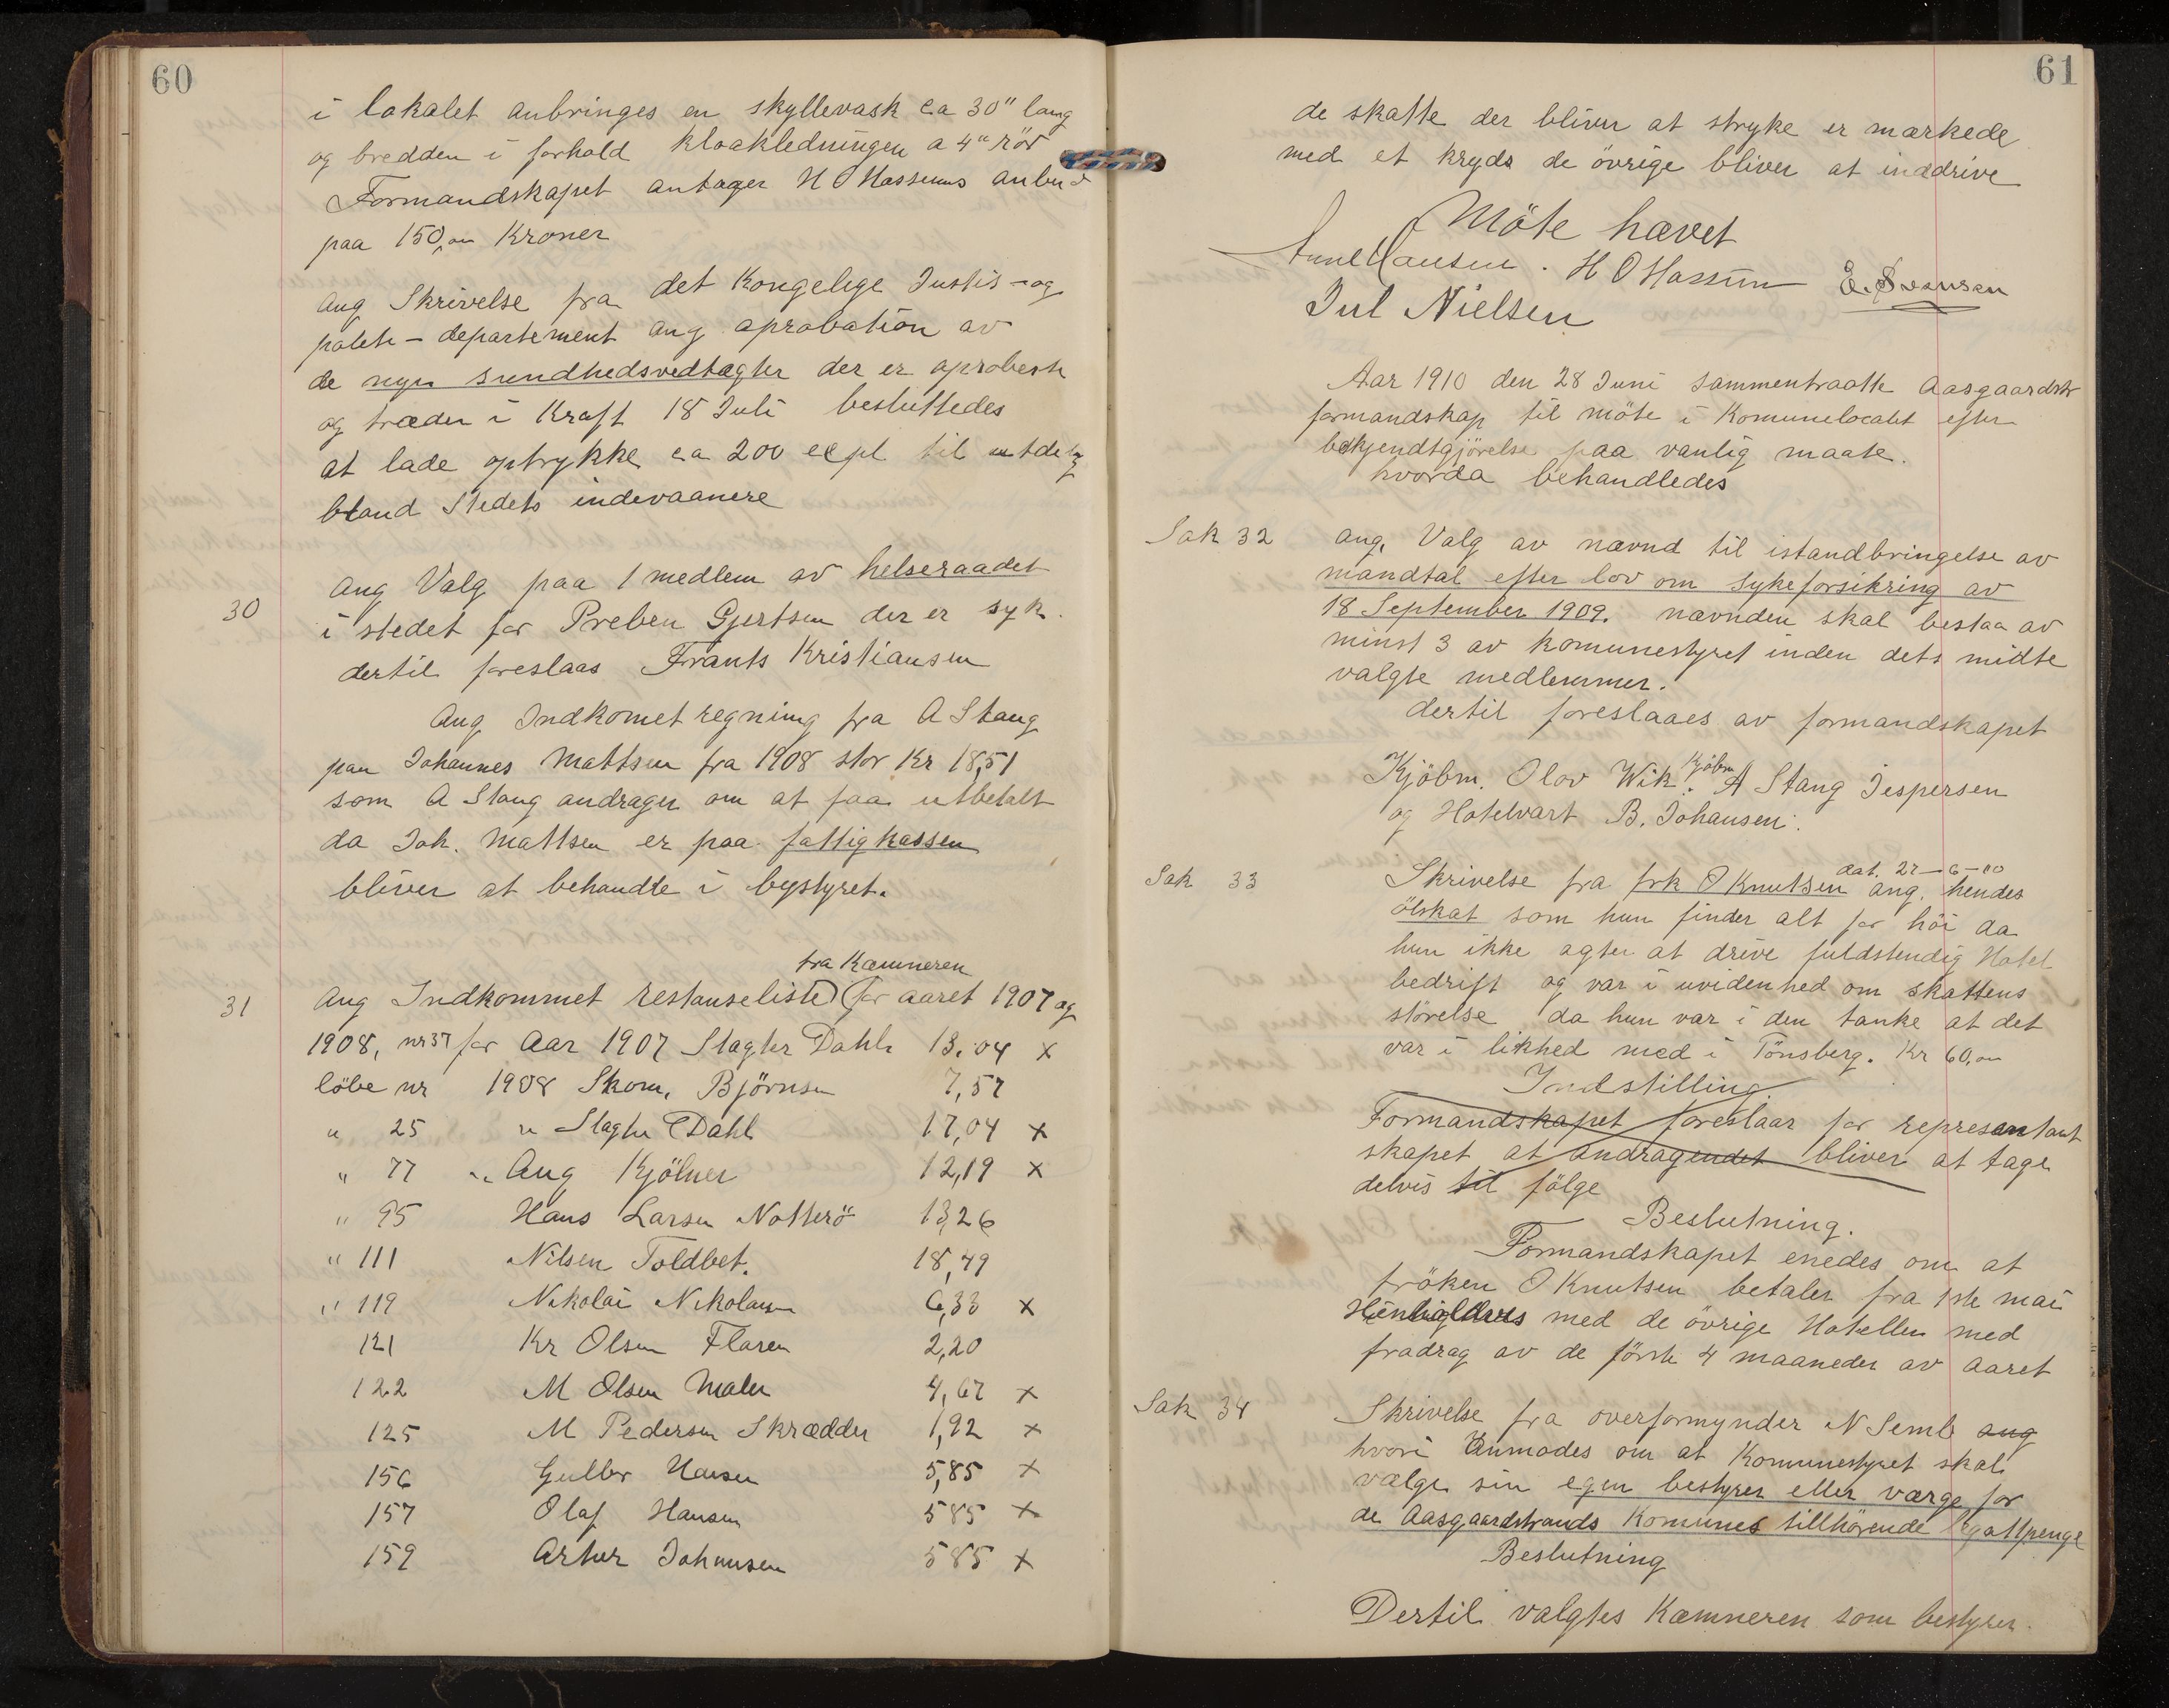 60
i lokalet anbringes en skyllevask ca 30" lang
og bredden i forhold kloakledningen a 4" rör
Formandskapet antager H O Hassums anbud
paa 150,oo Kroner
ang Skrivelse fra det Kongelege Justis - og
politi - departement ang aprobation av
de nye sundhedsvedtægter der er aproberte
og træder i Kraft 18 Juli besluttedes
at lade optrykke ca 200 expl til utdeling
bland Stedets indevaanere
30
Ang Valg paa 1 medlem av helseraadet
i stedet for Preben Gjertsen der er syk.
dertil foreslaas Frants Kristiansen
Ang Indkomet regning fra A Stang
paa Johannes Mattsen fra 1908 stor Kr 18,51
som A Stang andrager om at faa utbetalt
da Joh. Mattsen er paa fattigkassen
bliver at behandle i bystyret.
fra Kæmneren
31 Ang Indkommet restanseliste for aaret 1907 og
1908, nr 37 for Aar 1907 Slagter Dahl 13.04 x
löbe nr 1908 Skom. Bjørnsen 7,57
" 25 " Slagter Dahl 17,04 x
" 77 " Aug Kjölner 12,19 x
" 95 Hans Larsen Notterö 13,26
" 111 Nilsen Toldbet. 18,49
" 119 Nikolai Nikolaisen 6,33 x
121 Kr Olsen Flaren 2,20
122 M Olsen Maler 4,67 x
125 M Pedersen Skrædder 1,92 x
156 Gullbr Hansen 5,85 x
157 Olaf Hansen 585 x
159 Artur Johansen 585 x
61
de skatte der bliver at stryke er mærkede
med et kryds de övrige bliver at inddrive
Möte hævet
Hansen. H O Hassum E. Svensen
Jul Nielsen
Aar 1910 den 28 Juni sammentraatte Aasgaardstr
formandskap til möte i Komunelocalet efter
bekjendtgjörelse paa vanlig maate.
hvorda behandledes
Sak 32 ang. Valg av nævnd til istandbringelse av
mandtal efter lov om sykeforsikring av
18 September 1909. nævnden skal bestaa av
minst 3 av komunestyret inden dets midte
valgte medlemmer.
dertil foreslaaes av formandskapet
Kjöbm. Olov Wik. Kjöbm A Stang Jespersen
og Hotelvært B. Johansen.
dat. 27-6-10
Sak 33 Skrivelse fra frk O Knutsen ang. hendes
ölskat som hun finder alt for höi da
hun ikke agter at drive fuldstendig Hotel
bedrift og var i uvidenhed om skattens
störelse da hun var i den tanke at det
var i likhed med i Tönsberg. Kr 60,oo
Indstilling
Formandskapet foreslaar for representant
skapet at andragendet bliver at tage
delvis til fölge
Beslutning.
Formandskapet enedes om at
fröken O Knutsen betaler fra 1ste mai
med de övrige Hoteller med
fradrag av de förste 4 maaneder av aaret
Sak 34 Skrivelse fra overformynder N Semb ang
hvori anmodes om at Komunestyret skal
vælge sin egen bestyrer eller værge for
de Aasgaardstrands Komunes tillhörende legatpenge
Beslutning
Dertil valgtes Kæmneren som bestyrer.